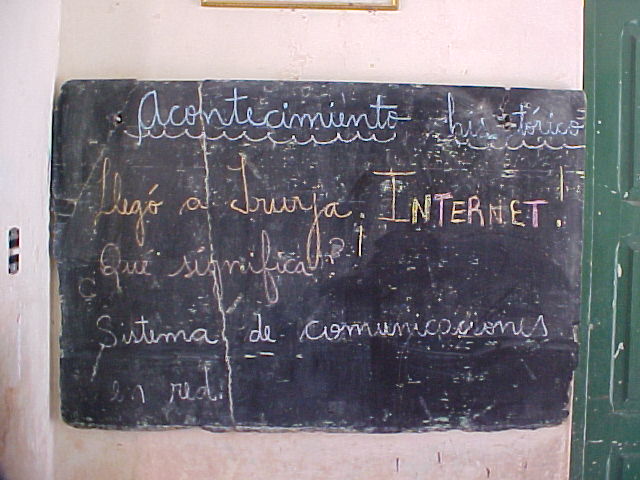 Acontecimiento histórico
Llegó a Iruya ¡INTERNET!
¿Qué significa?
Sistema de comunicaciones
en red.